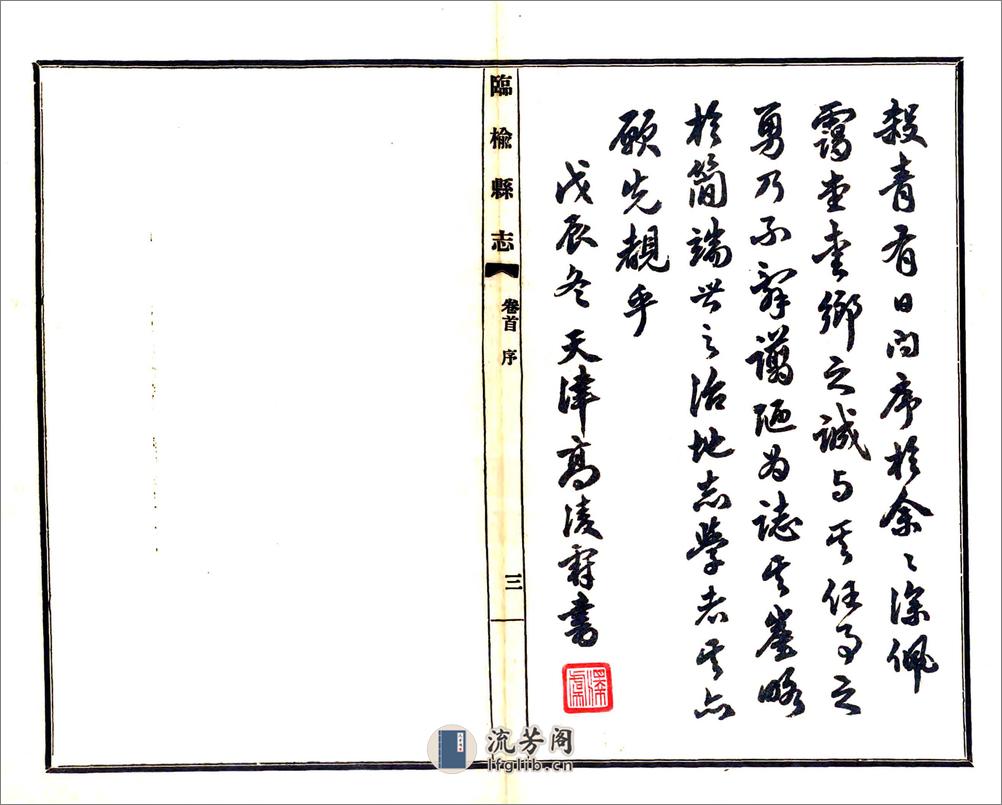 殺青有日問序於余々深佩
靄堂愛鄉之誠与其任事之
勇乃不辭譾陋為誌其崖略
於簡端世之治地志學者其亦
願先覩乎
戊辰冬天津高淩霨書
臨榆縣志
卷首 序
三
流芳阁
lfglib.cn